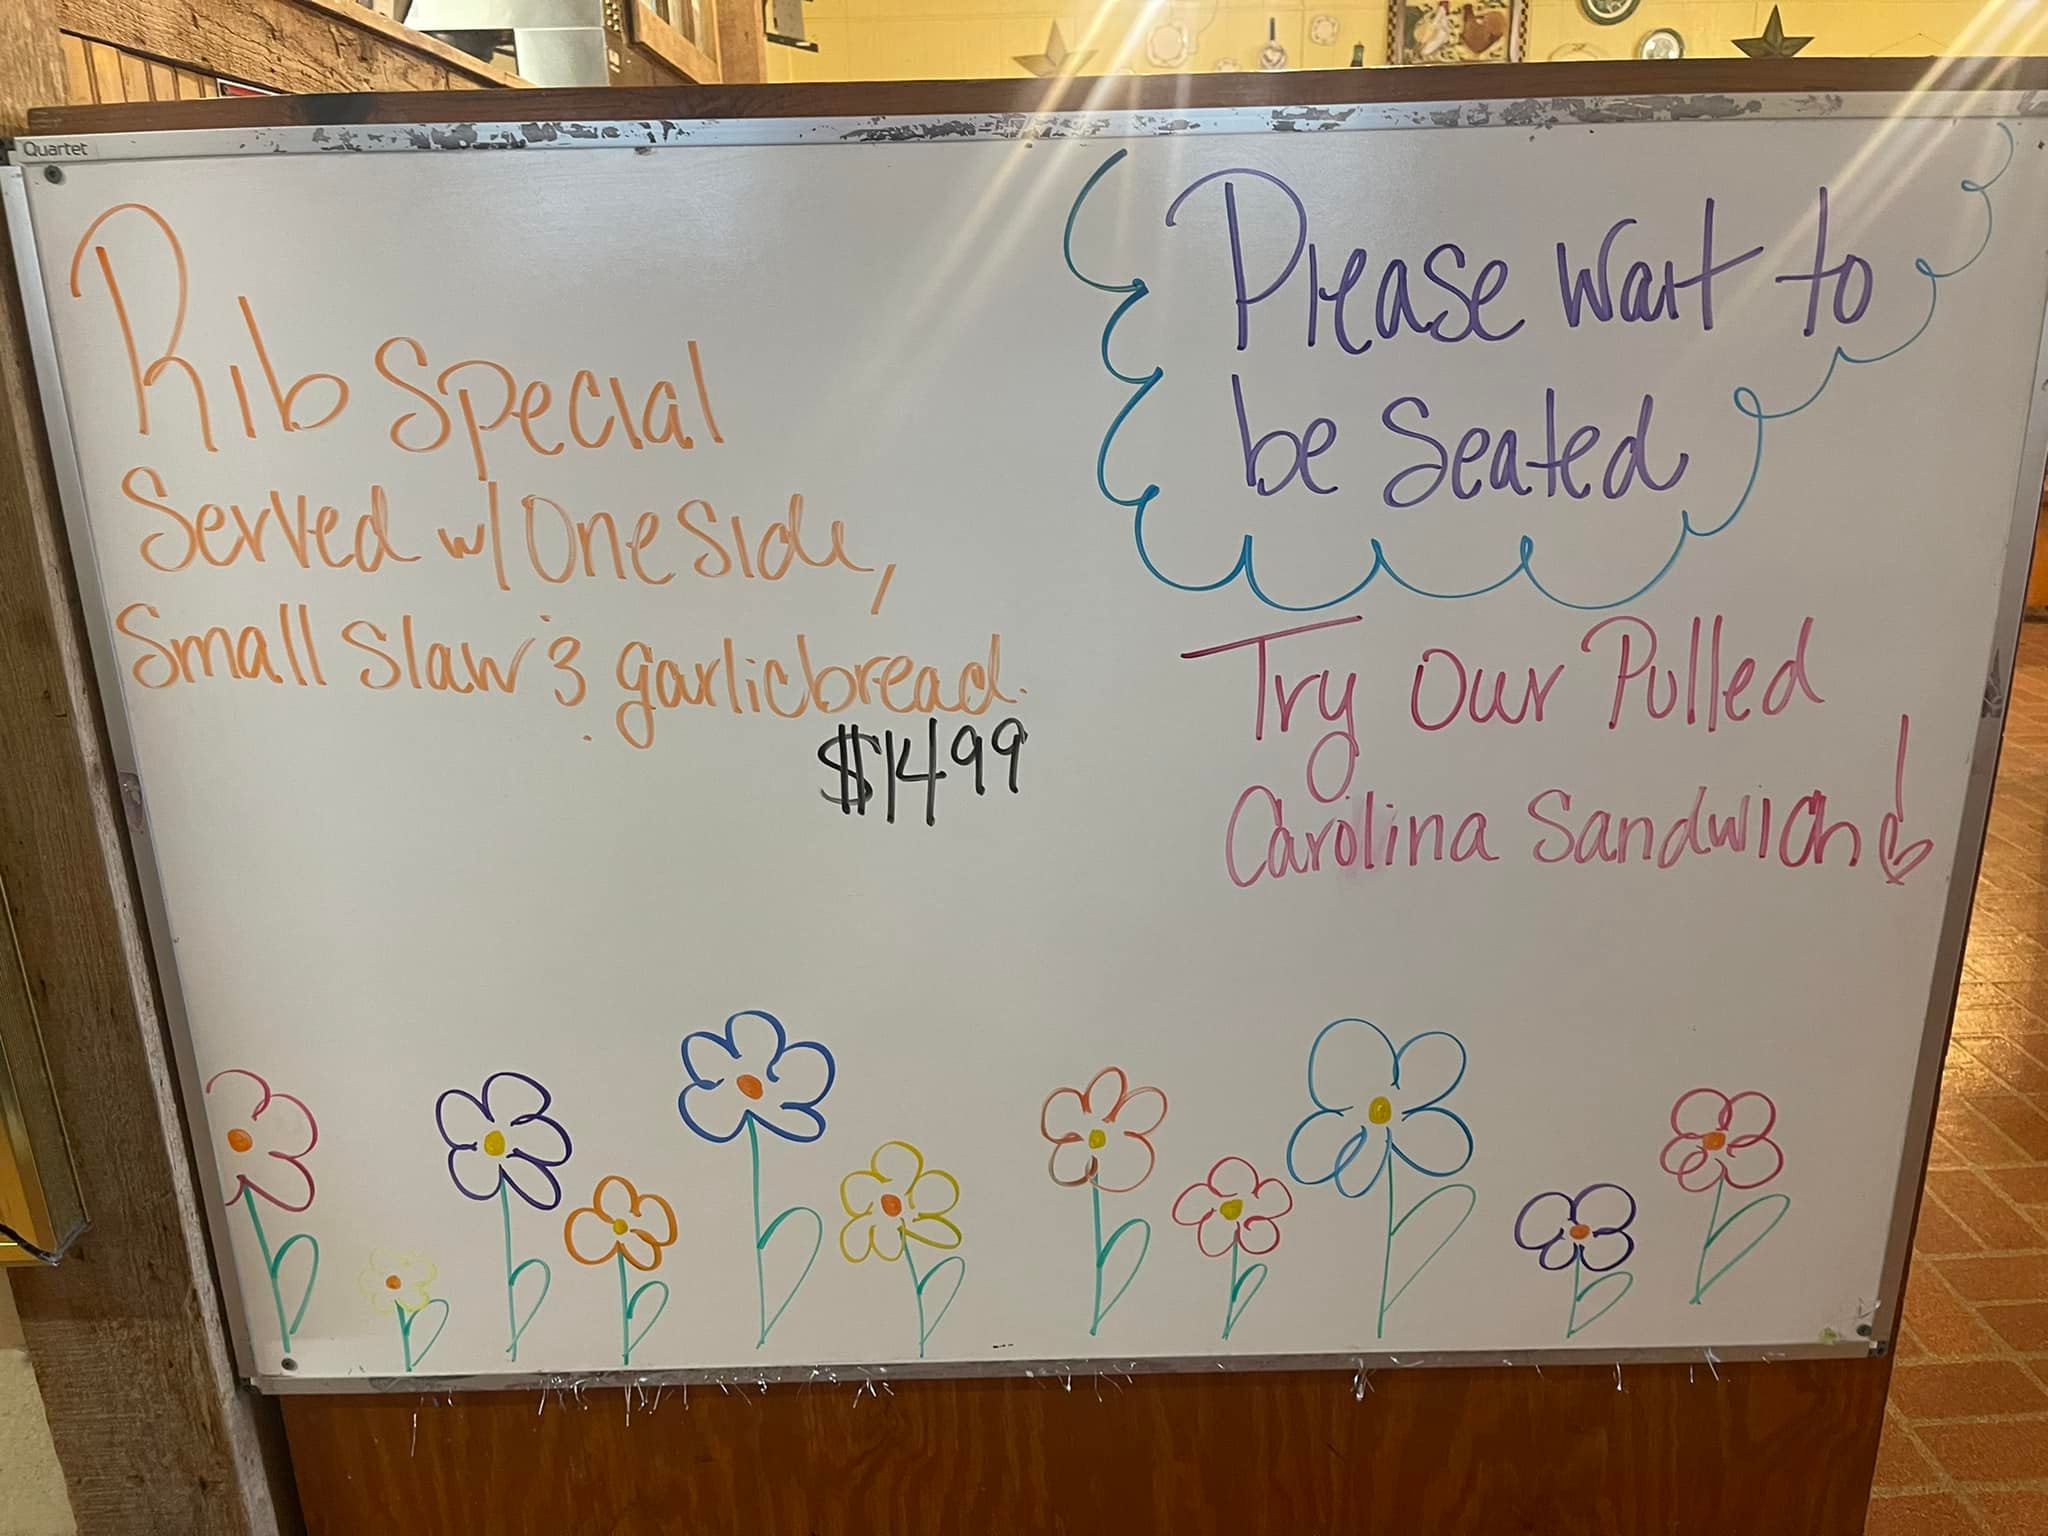 Quartet
Rib Special
Served w/ One Side,
Small Slaw & garlic bread.
$14.99
Please Wait to
be Seated
Try Our Pulled
Carolina Sandwich!